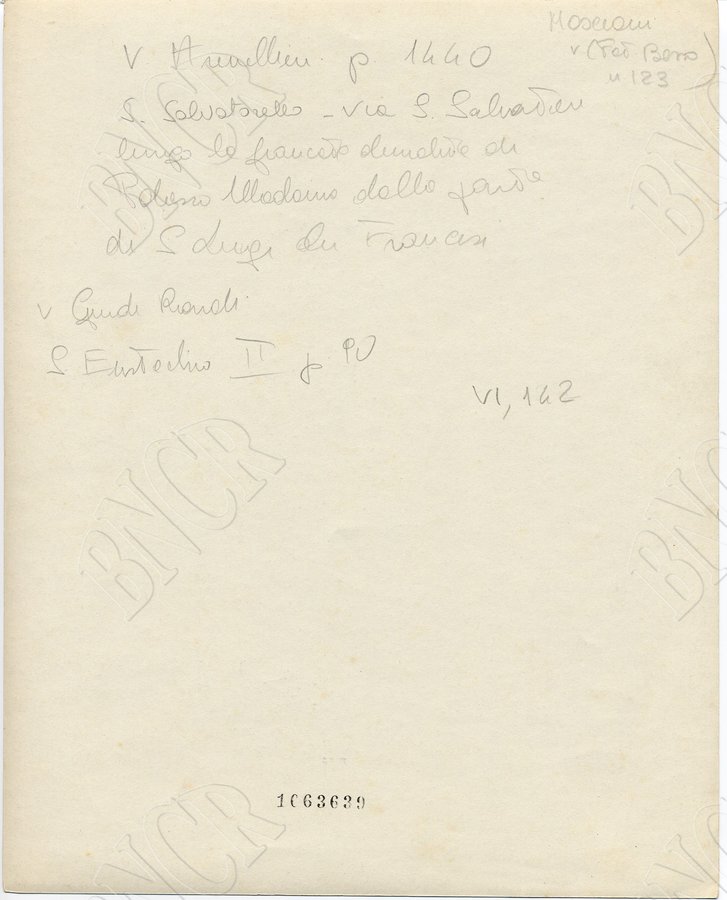 Moscioni
v (Fot Boro
n 123)
V Armellini p. 1440
S. Salvatorello - Via S. Salvatore
lungo la facciata di
Palazzo Madama dalla parte
di S Luigi dei Francesi
v Guide Rionali
S Eustachio II p 90
VI, 142
BNCR
1063639